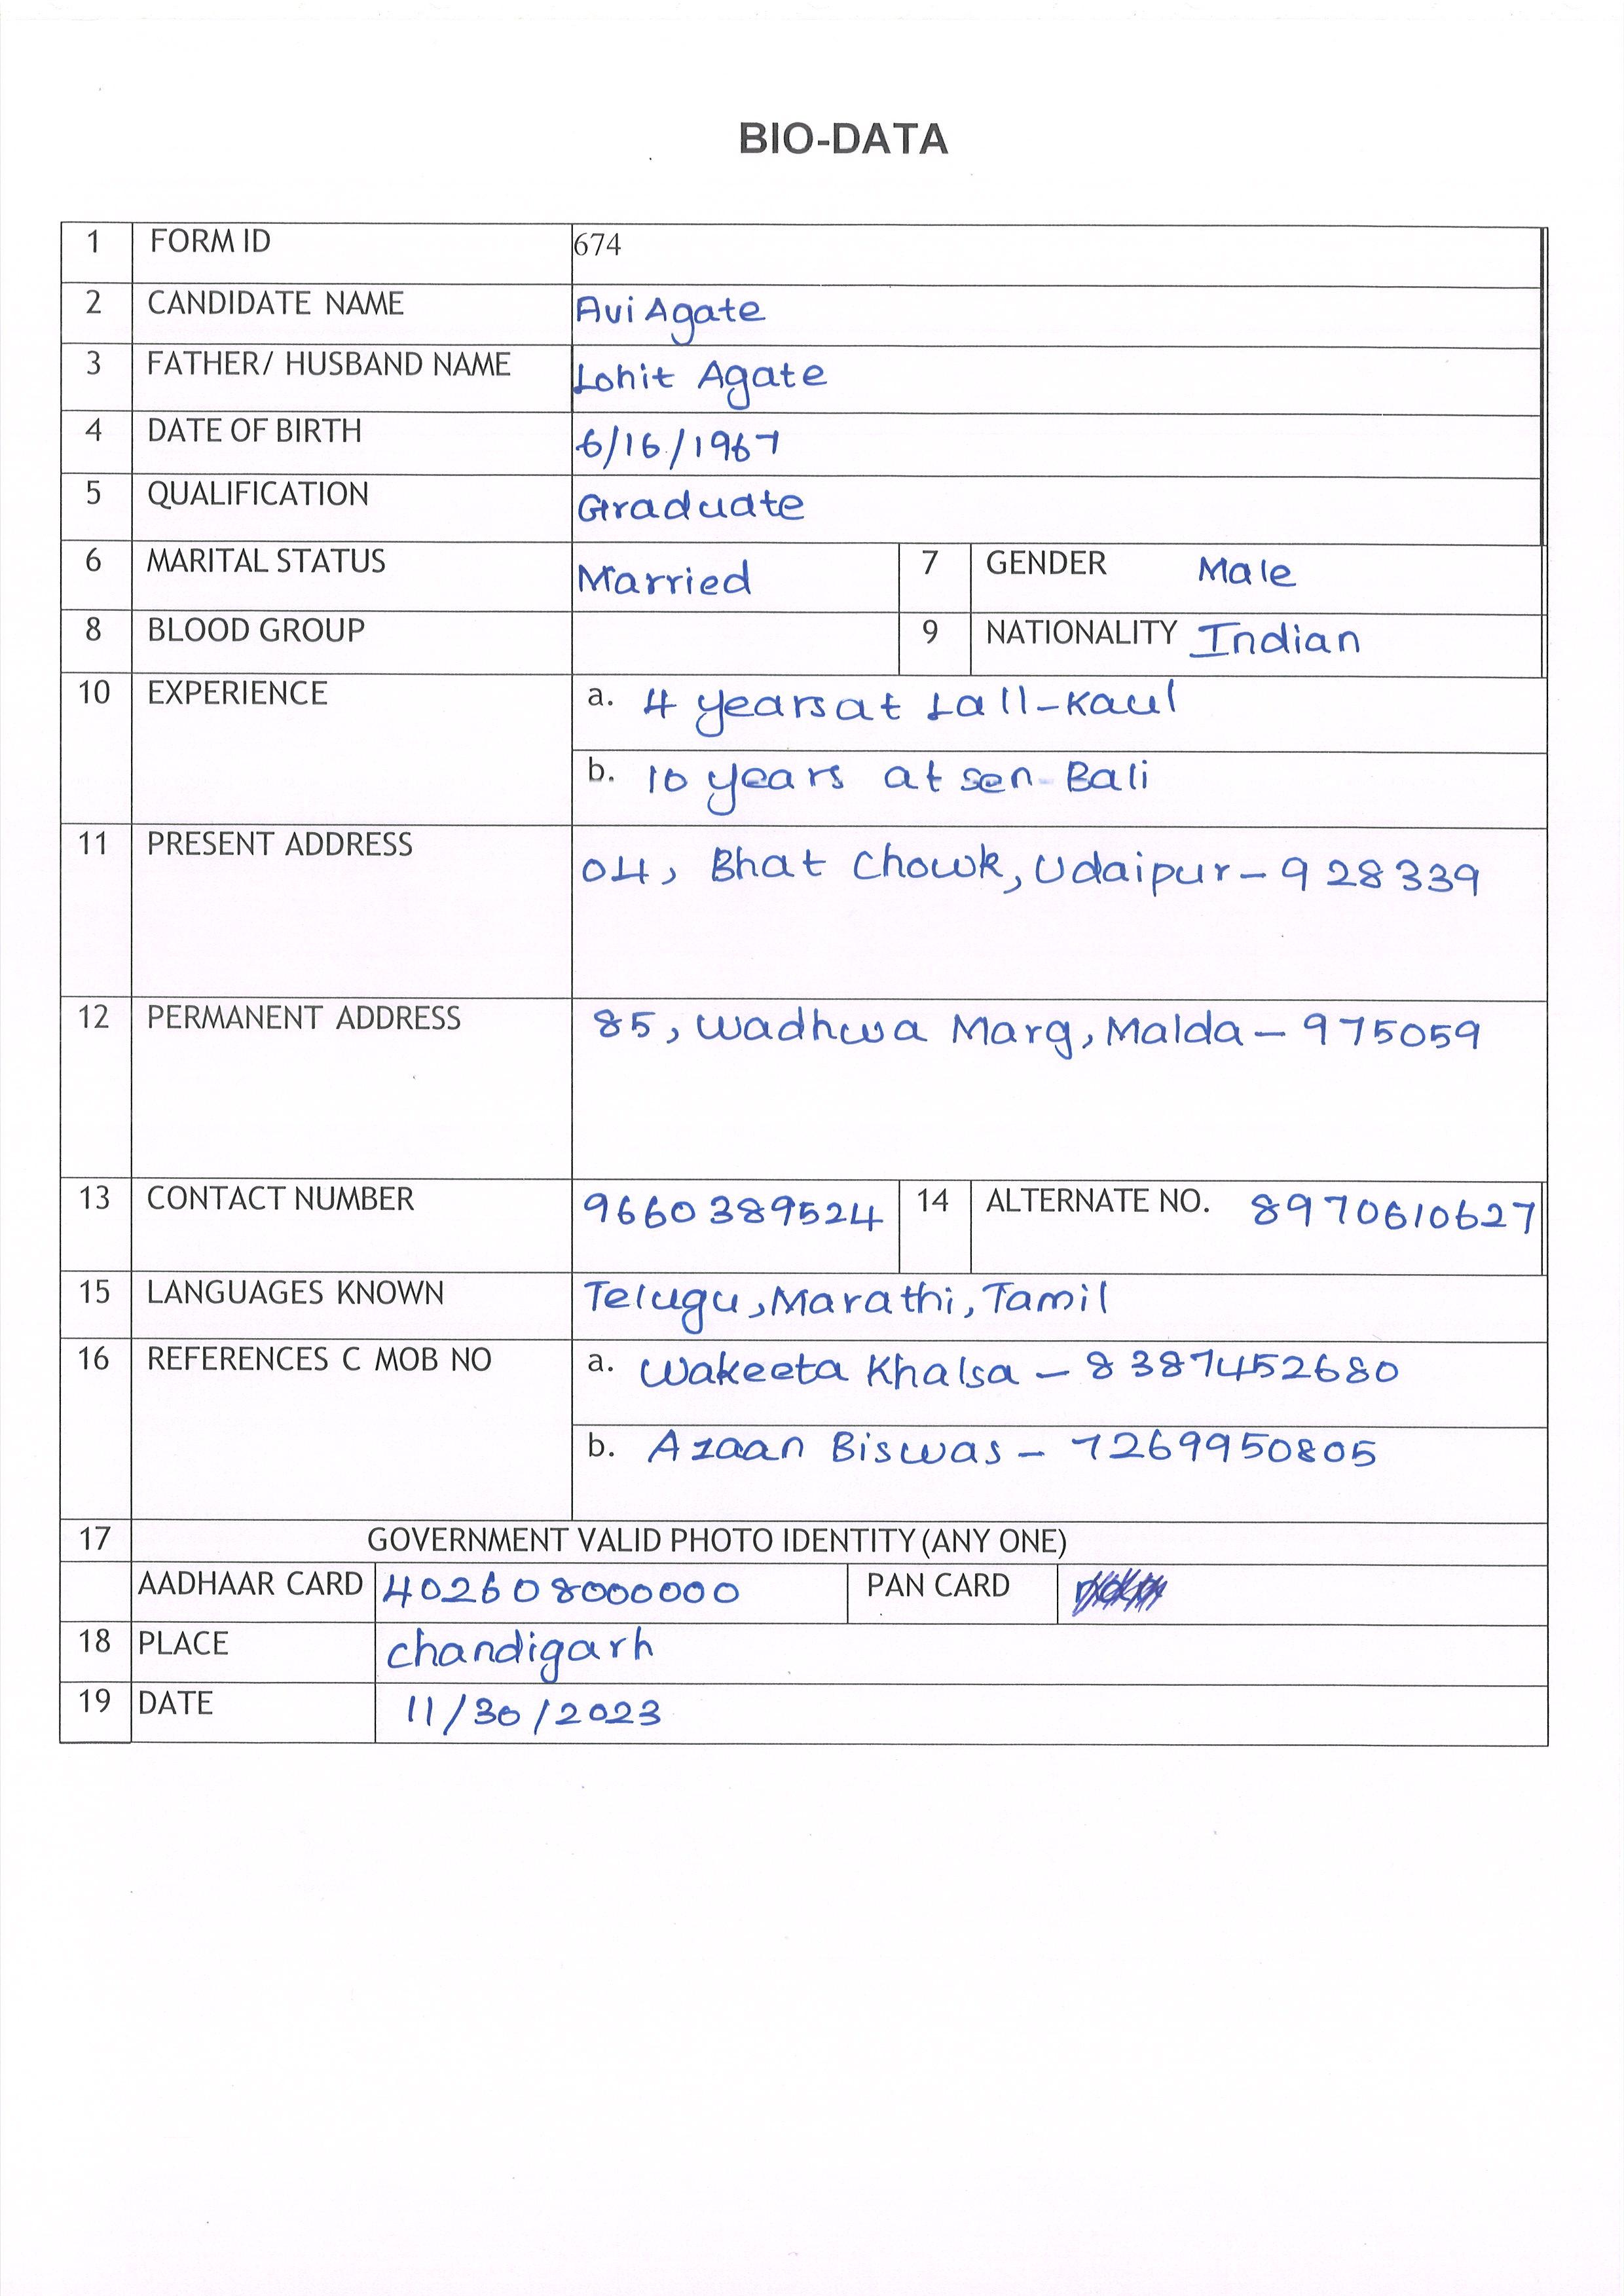 BIO-DATA
1 FORM ID 674
2 CANDIDATE NAME Avi Agate
3 FATHER/ HUSBAND NAME Lohit Agate
4 DATE OF BIRTH 6/16/1967
5 QUALIFICATION Graduate
6 MARITAL STATUS Married 7 GENDER Male
8 BLOOD GROUP 9 NATIONALITY Indian
10 EXPERIENCE a. 4 years at Lall-Kaul
b. 10 years at sen-Bali
11 PRESENT ADDRESS 04, Bhat Chowk, Udaipur-928339
12 PERMANENT ADDRESS 85, Wadhwa Marg, Malda-975059
13 CONTACT NUMBER 9660389524 14 ALTERNATE NO. 8970610627
15 LANGUAGES KNOWN Telugu, Marathi, Tamil
16 REFERENCES C MOB NO a. Wakeeta Khalsa - 8387452680
b. Azaan Biswas - 7269950805
17 GOVERNMENT VALID PHOTO IDENTITY (ANY ONE)
AADHAAR CARD 402608000000 PAN CARD
18 PLACE chandigarh
19 DATE 11/30/2023